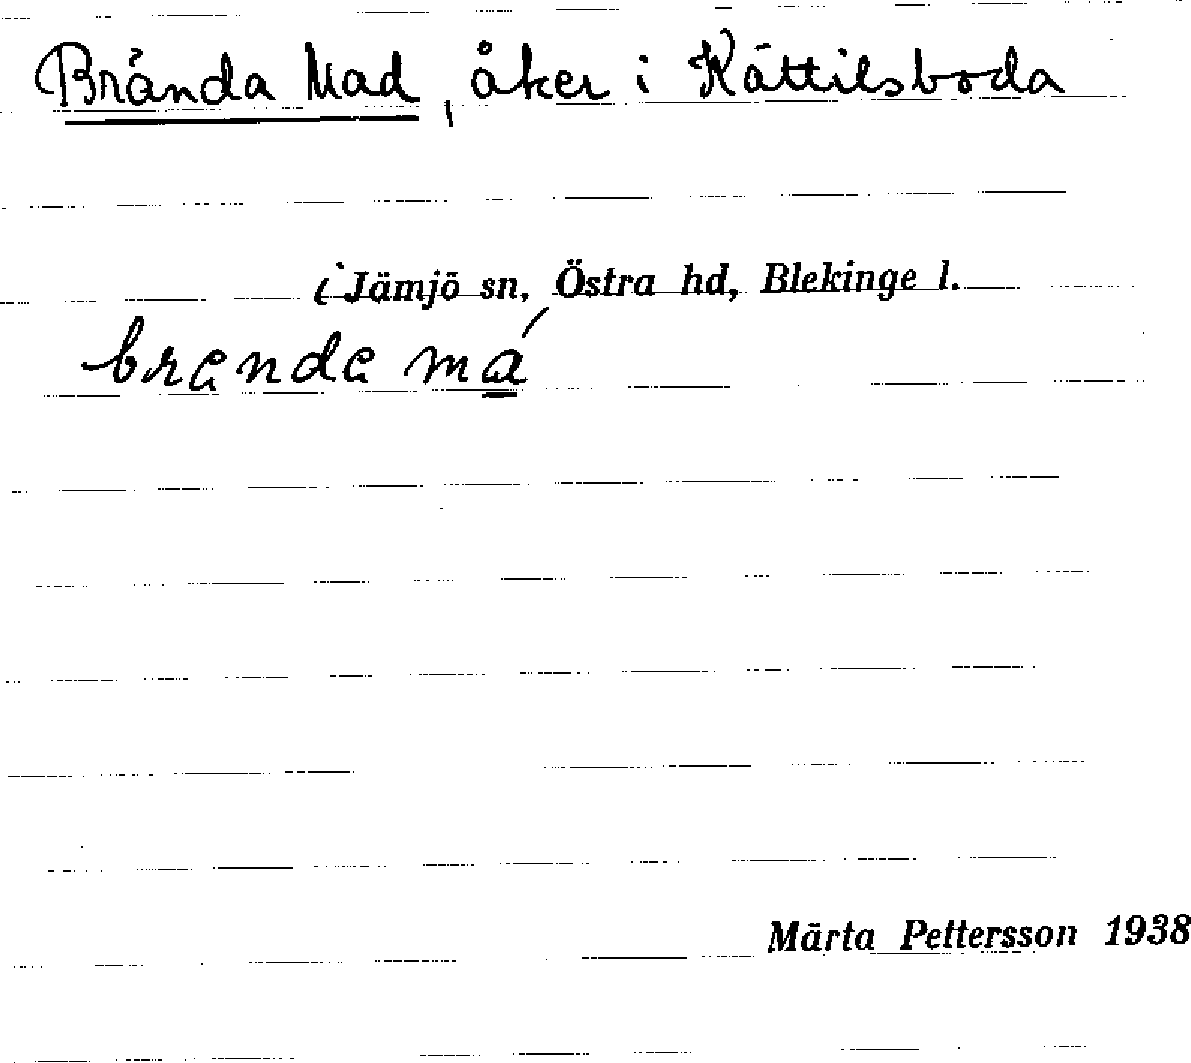 Brända Mad, åker i Kättilsboda
i Jämjö sn, Östra hd, Blekinge l.
Märta Pettersson 1938